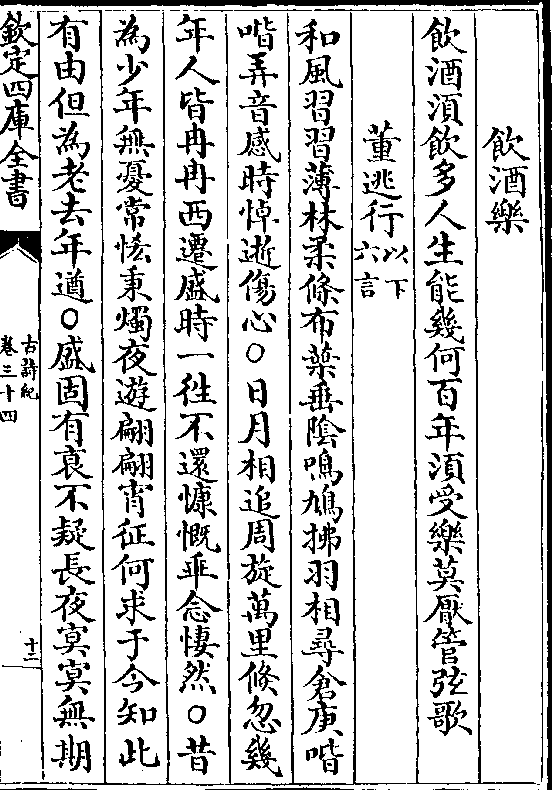 飲酒樂
飲酒湏飲多人生能幾何百年湏受樂莫厭管弦歌
董逃行以下六言
和風習習薄林柔條布葉垂陰鳴鳩拂羽相尋倉庚喈
喈弄音感時悼逝傷心○日月相追周旋萬里倏忽幾
年人皆冉冉西遷盛時一徃不還慷慨乖念悽然○昔
為少年無憂常恠秉燭夜遊翩翩宵征何求于今知此
有由但為老去年遒○盛固有衰不疑長夜冥冥無期
欽定四庫全書
古詩紀
卷三十四
十二